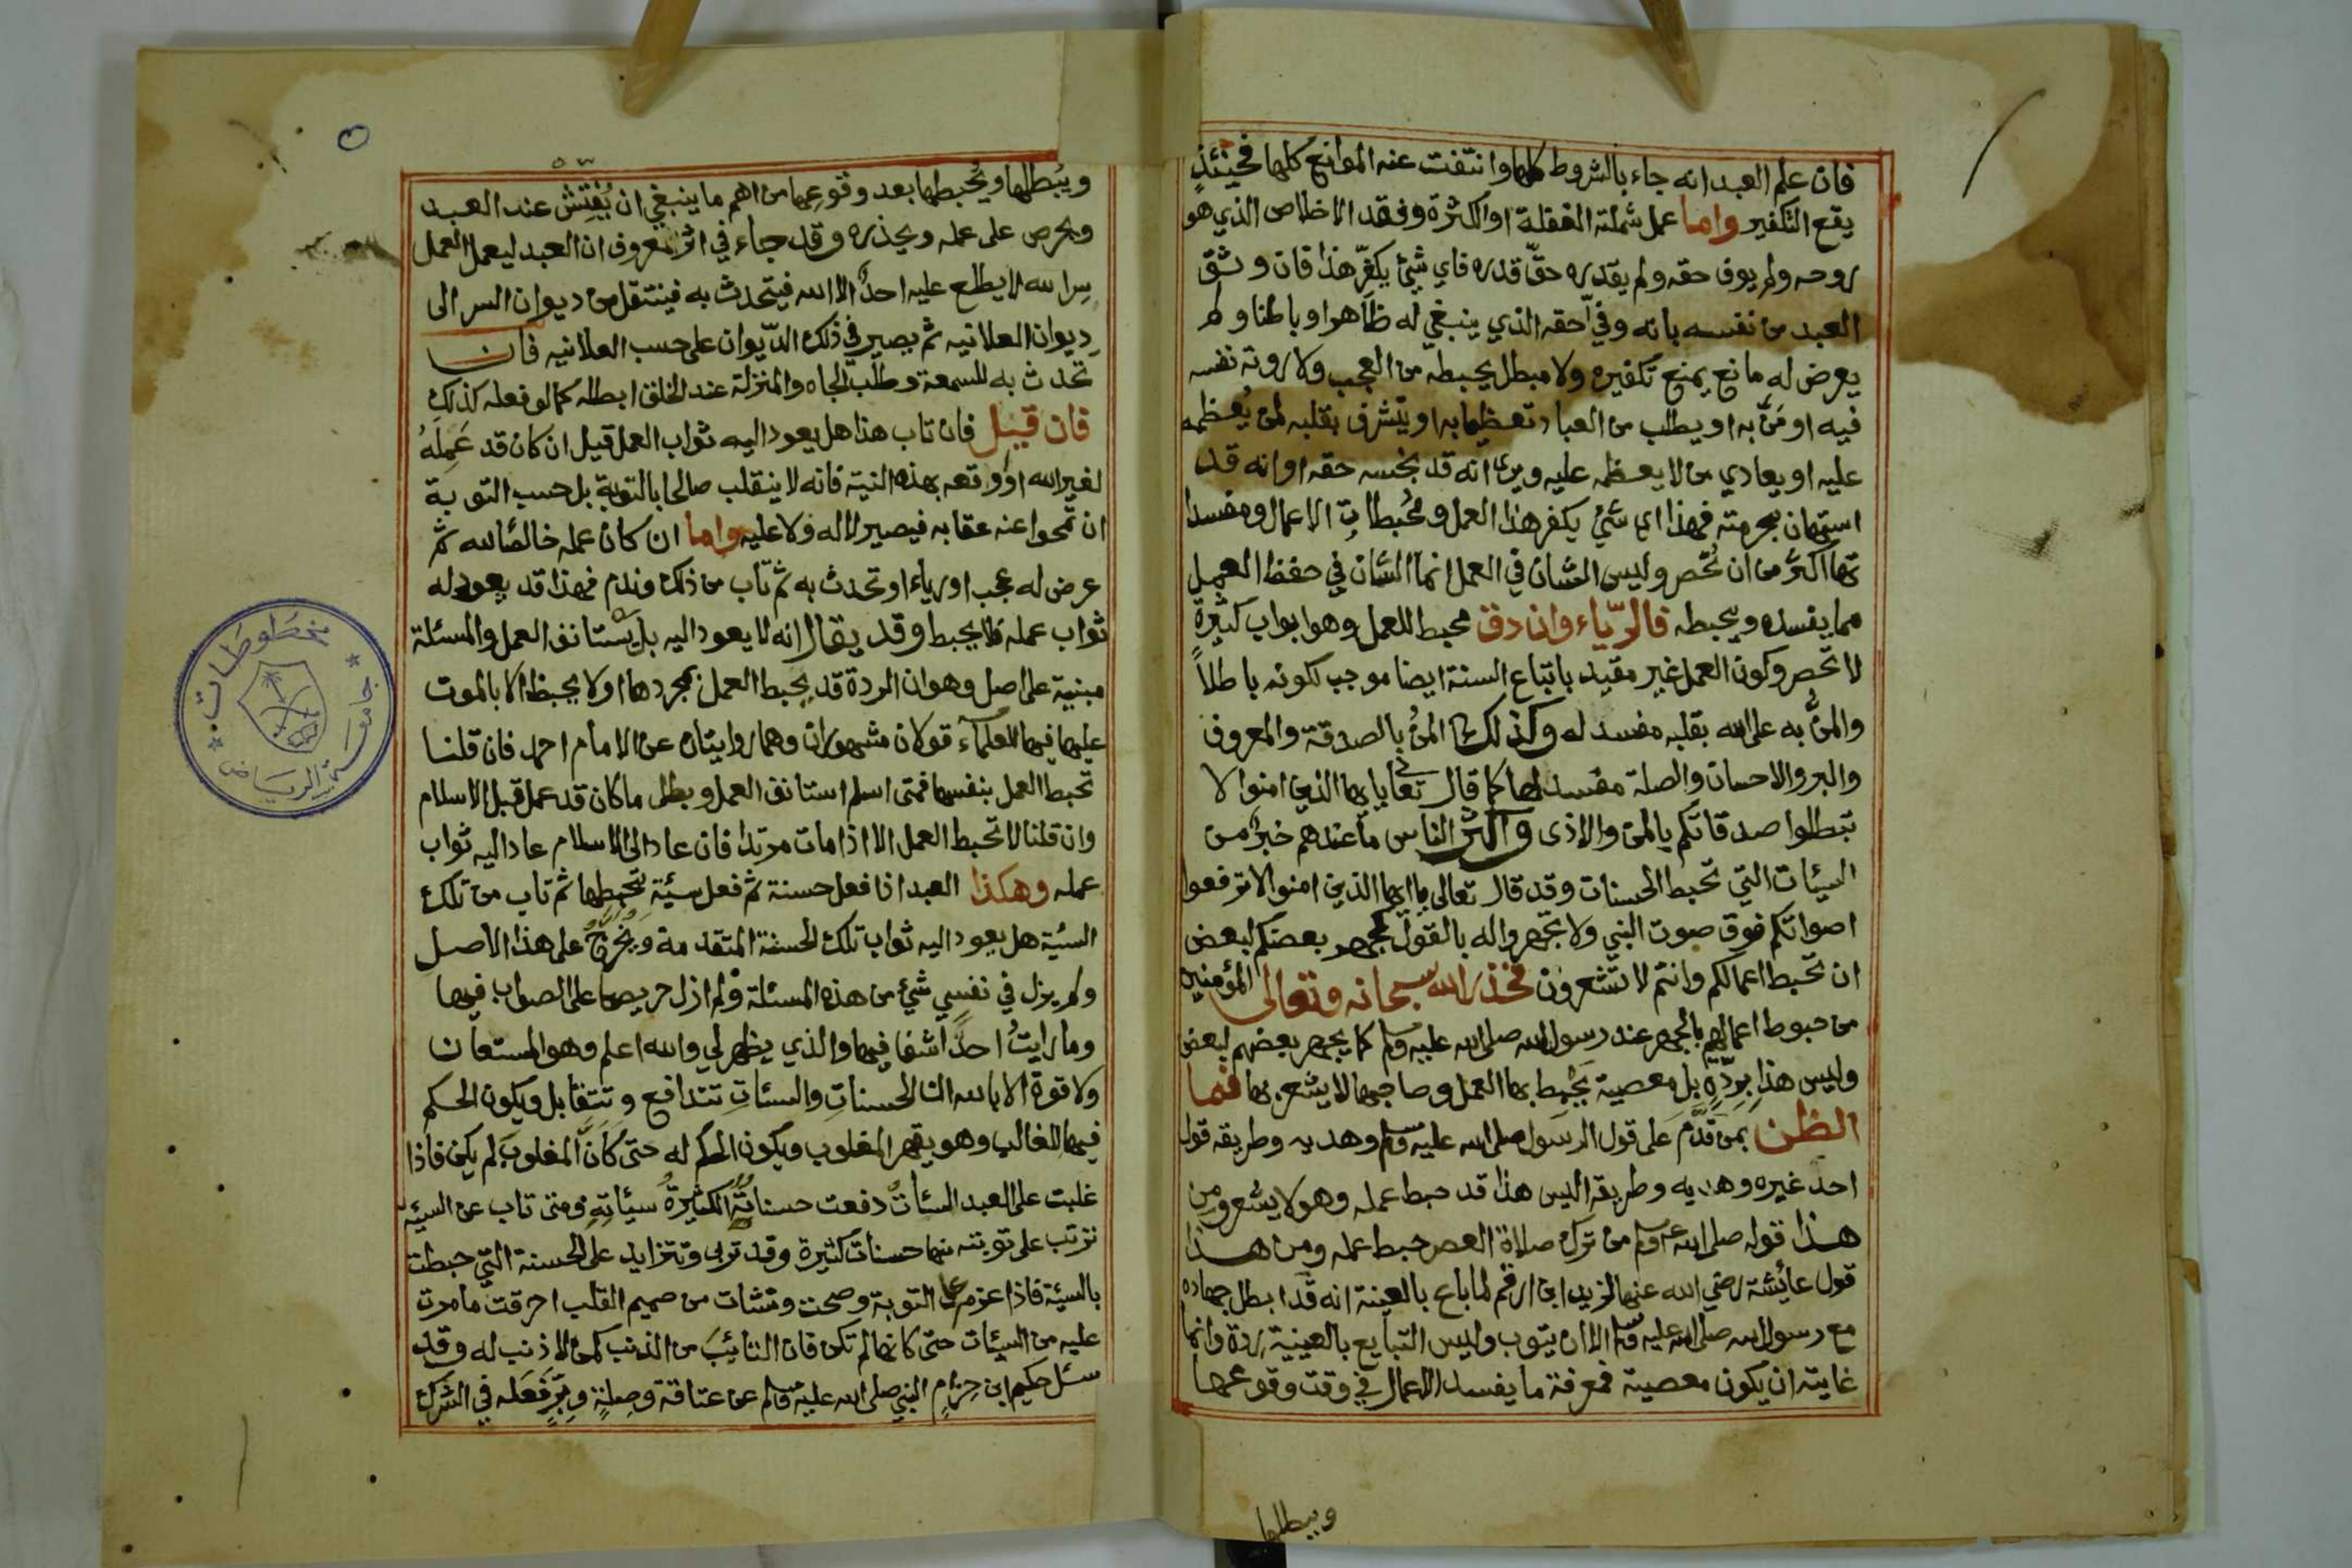 فان علم العبد انه جاء بالشروط كلها وانتفت عنه الموانع كلها فحينئذٍ
يقع التكفير واما عمل شملته الغفلة او اكثره وفقد الاخلاص الذي هو
روحه ولم يوف حقه ولم يقدره حقّ قدره فاي شيئ يكفّر هذا فان وثق
العبد من نفسه بانه وفيّ حقه الذي ينبغي له ظاهرا وباطنا ولم
يعرض له مانع يمنع تكفيره ولا مبطل يحبطه من العجب ولا روية نفسه
فيه او منّ به او يطلب من العباد تعظيما به او يتشرف بقلبه لمن يعظمه
عليه او يعادي من لا يعظمه عليه ويرى انه قد بخسه حقه او انه قد
استهان بحرمته فهذا اي شيئ يكفر هذا العمل ومحُبطات الاعمال ومفسدا
تها اكثر من ان تُحصر وليس الشان في العمل انما الشان في حفظ العمل
مما يفسده ويحبطه فالرّياء وان دق محبط للعمل وهو ابواب كثيرة
لا تحصر وكون العمل غير مقيد باتباع السنة ايضا موجب لكونه باطلاً
والمنُّ به على الله بقلبه مفسد له وكذلك المنُّ بالصدقة والمعروف
والبر والاحسان والصلة مفسد لها كما قال تعالى يايها الذين امنوا لا
تبطلوا صدقاتكم بالمن والاذى واكثر الناس ما عندهم خبرٌ من
السيئات التي تحبط الحسنات وقد قال تعالى يا ايها الذين امنوا لا ترفعوا
اصواتكم فوق صوت النبي ولا تجهروا له بالقول كجهر بعضكم لبعض
ان تحبط اعمالكم وانتم لا تشعرون فحذر الله سبحانه وتعالى المؤمنين
من حبوط اعمالهم بالجهر عند رسول الله صلى الله عليه وسلم كما يجهر بعضهم لبعض
وليس هذا بِرِدّةٍ بل معصية يَحْبِط بها العمل وصاحبها لا يشعر بها فما
الظن بمن قَدَّمَ عَلى قول الرسول صلى الله عليه وسلم وهديه وطريقه قول
احد غيره وهديه وطريقه اليس هذا قد حبط عمله وهو لا يشعر ومن
هذا قوله صلى الله عليه وسلم من ترك صلاة العصر حبط عمله ومن هذا
قول عائشة رضي الله عنها لزيد ابن ارقم لما باع بالعينة انه قد ابطل جهاده
مع رسول الله صلى الله عليه وسلم الا ان يتوب وليس التبايع بالعينية ردة وانما
غايته ان يكون معصية فمعرفة ما يفسد الاعمال في وقت وقوعها
ويبطلها
ويُبطلها ويُحبطها بعد وقوعها من اهم ما ينبغي ان يُفتِش عند العبد
ويحرص على عمله ويحذره وقد جاء في اثر معروف ان العبد ليعمل العمل
سرا لله لا يطلع عليه احدٌ الا الله فيتحدث به فينتقل من ديوان السر الى
ديوان العلانيه ثم يصير في ذلك الدّيوان على حسب العلانيه فان
تحدث به للسمعة وطلب الجاه والمنزلة عند الخلق ابطله كما لو فعله كذلك
فان قيل فان تاب هذا هل يعود اليه ثواب العمل قيل ان كان قد عَمِلَهُ
لغير الله او وقعه بهذه النية فانه لا ينقلب صالحا بالتوبة بل حسب التوبة
ان تمحوا عنه عقابه فيصير لا له ولا عليه واما ان كان عمله خالصًا لله ثم
عرض له عجب او رياء او تحدث به ثم تاب من ذلك وندم فهذا قد يعود له
ثواب عمله فلا يحبط وقد يقال انه لا يعود اليه بل يستانف العمل والمسئلة
مبنية على اصل وهو ان الردة قد يحبط العمل بمجردها او لا يحبط الا بالموت
عليها فيها للعلماء قولان مشهوران وهما روايتان عن الامام احمد فان قلنا
تحبط العمل بنفسها فمتى اسلم استانف العمل وبطل ما كان قد عمل قبل الاسلام
وان قلنا لا تحبط العمل الا اذا مات مرتدا فان عاد الى الاسلام عاد اليه ثواب
عمله وهكذا العبد اذا فعل حسنة ثم فعل سيئة تحبطها ثم تاب من تلك
السئية هل يعود اليه ثواب تلك الحسنة المتقدمة ويُخَرَّجُ على هذا الاصل
ولم يزل في نفسي شيئ من هذه المسئلة ولم ازل حريصا على الصواب فيها
وما رايتُ احداً شفا فيها والذي يظهر لي والله اعلم وهو المستعان
ولا قوة الا بالله ان الحسناتِ والسئاتِ تتدافع وتتقابل ويكون الحكم
فيها للغالب وهو يقهر المغلوب ويكون الحكم له حتى كَاَنَّ المغلوبَ لم يكن فاذا
غلبت على العبد السئاتُ دفعت حسناتُهُ الكثيرةُ سيئاتِهِ ومتى تاب عن السيئه
ترتب على توبته منها حسنات كثيرة وقد تربى وتتزايد على الحسنة التي حبطت
بالسيئة فاذا عزم على التوبة وصحت ونشات من صميم القلب احرقت ما مرت
عليه من السيئات حتى كانها لم تكن فان التائبَ من الذنب كمن لا ذنب له وقد
سئل حكيم ابن حِزامٍ النبي صلى الله عليه وسلم عن عتاقة وصِلةٍ وبِرٍّ فَعَله في الشرك
مخطوطات
جامعة الرياض